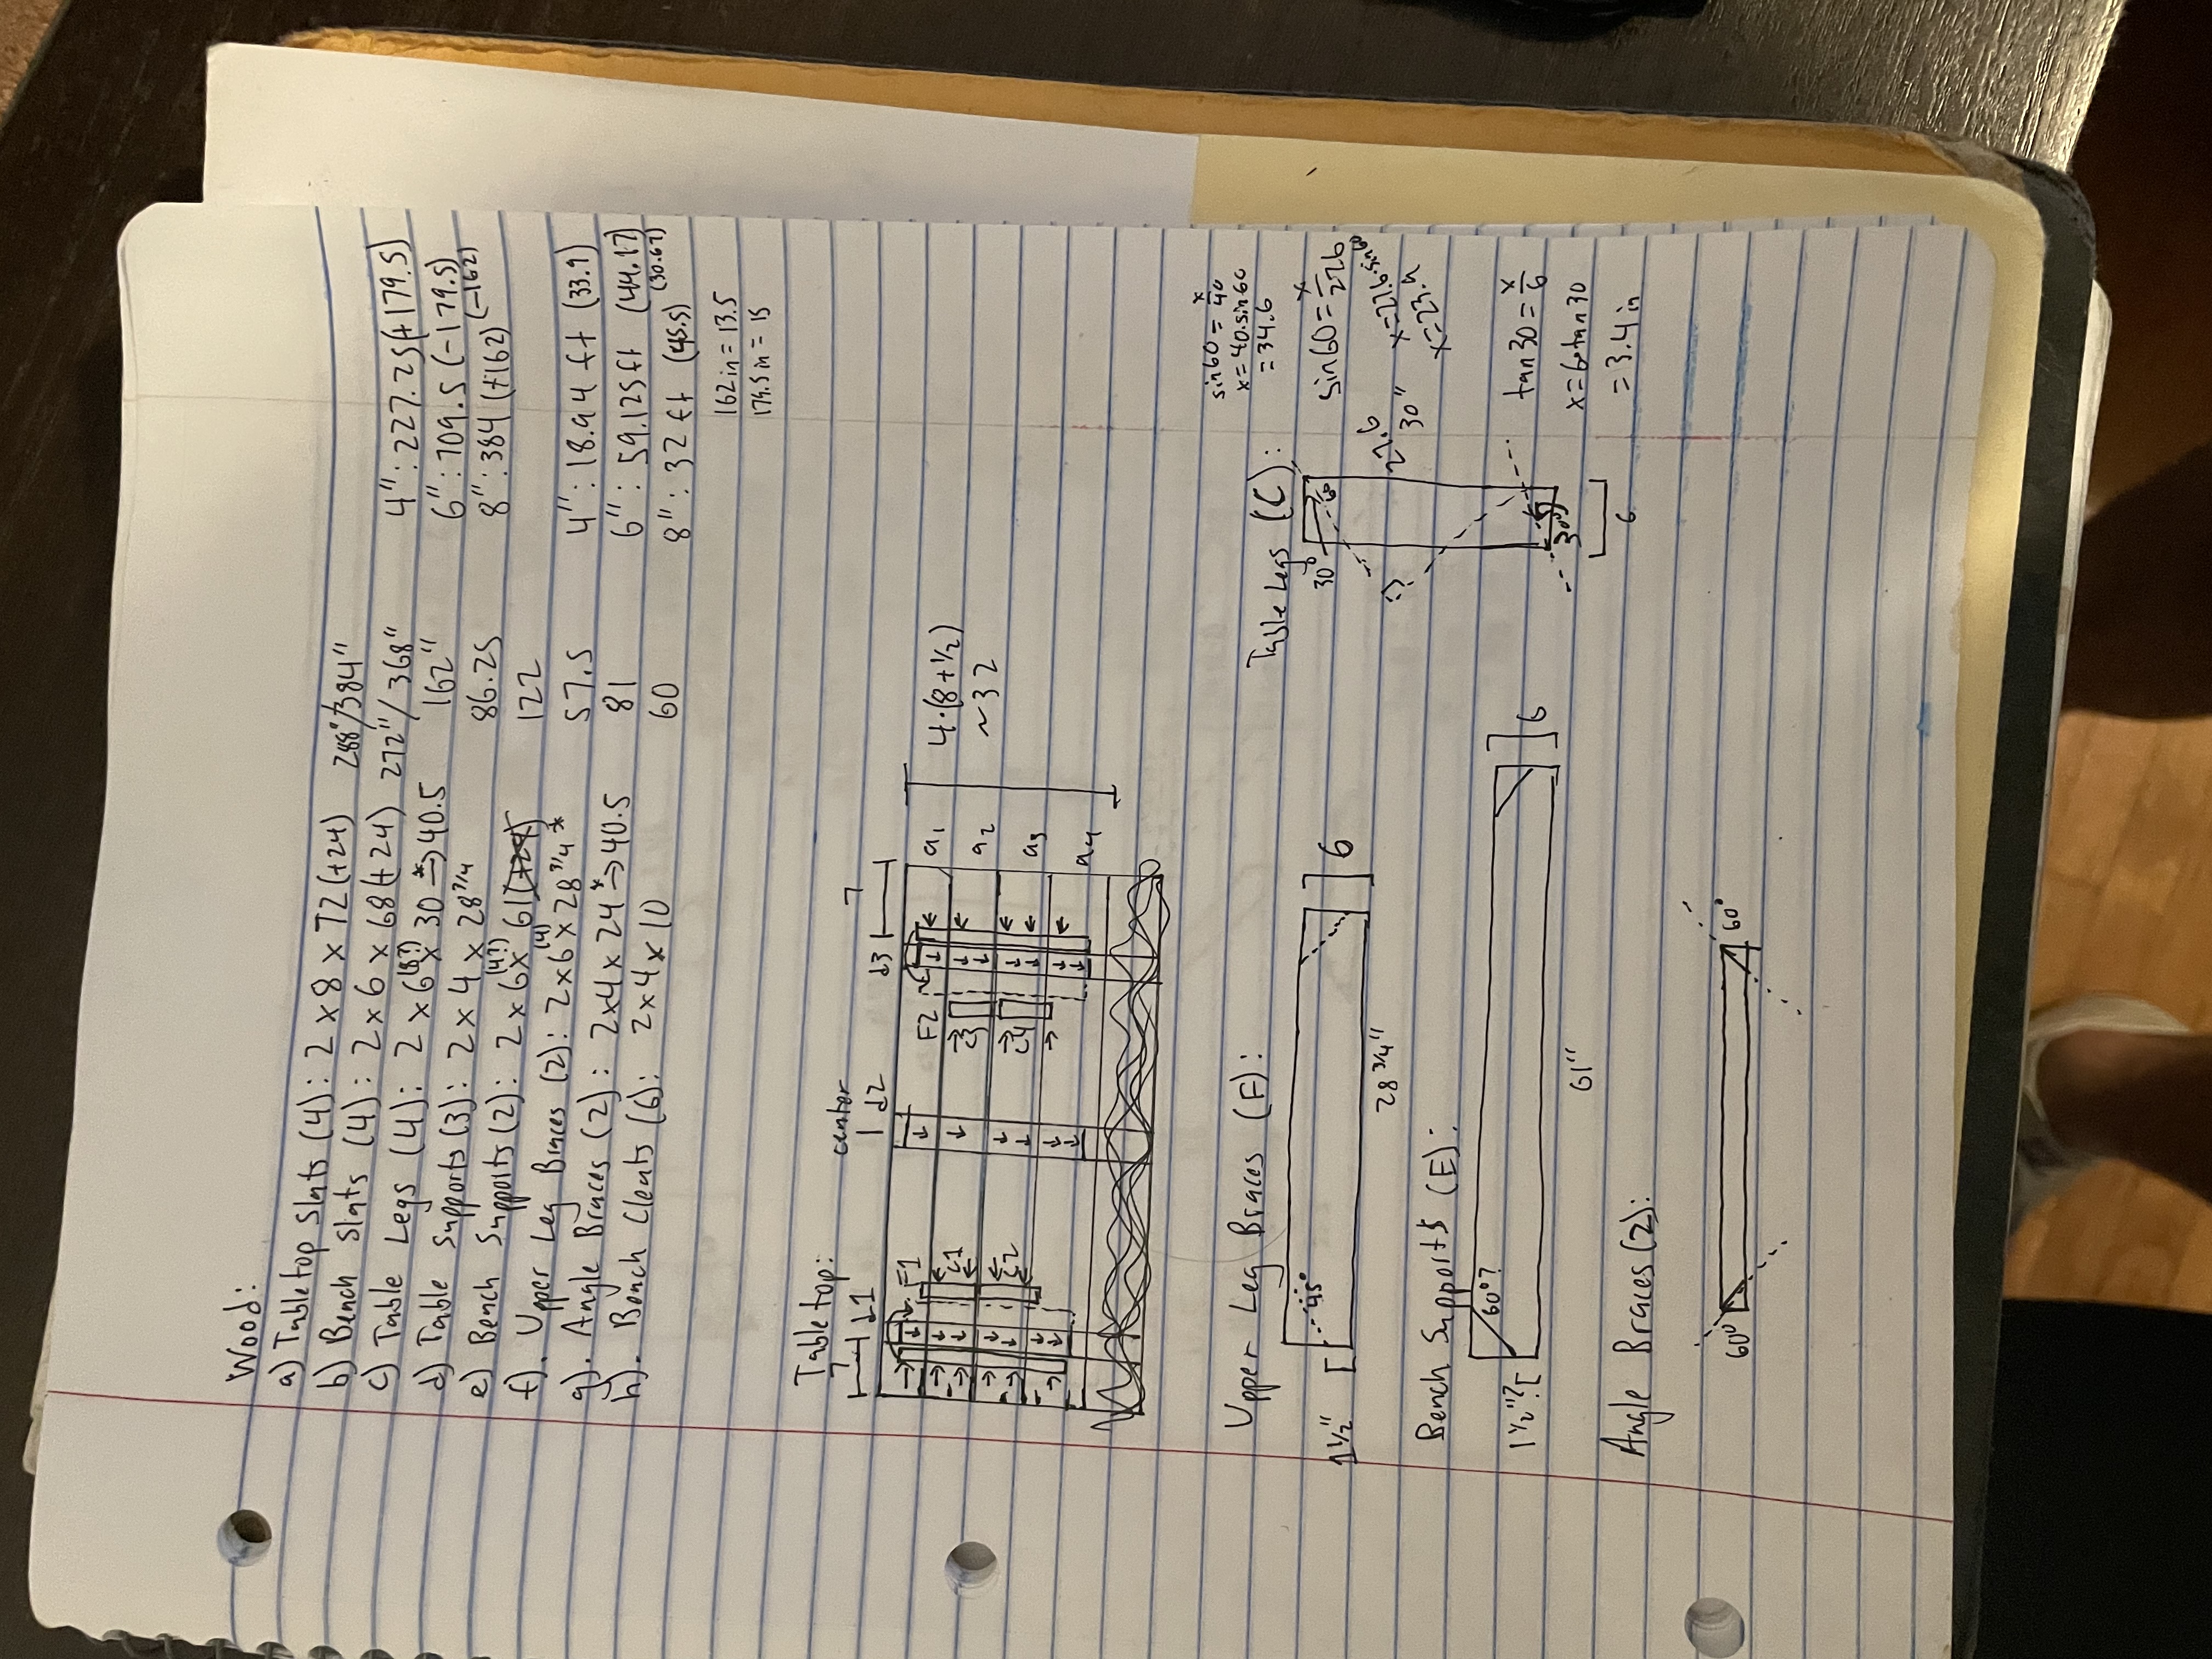 Wood:
a) Tabletop Slats (4): 2 x 8 x 72 (+24) 288"/384"
b) Bench Slats (4): 2x6 x 68 (+24) 272"/368"
c) Table Legs (4): 2 x 6 (8?) x 30 *→ 40.5 162"
d) Table Supports (3): 2 x 4 x 28 3/4 86.25
e) Bench Supports (2): 2 x 6 (4?) x 61 (+24) 122
f). Upper Leg Braces (2): 2x6 (4) x 28 3/4 * 57.5
g). Angle Braces (2): 2x4 x 24 *→ 40.5 81
h). Bench Cleats (6): 2x4 x 10 60
4": 227.25 (+179.5)
6": 709.5 (-179.5)
8": 384 (+162) (-162)
4": 18.94 ft (33.9)
6": 59.125 ft (44.17)
8": 32 ft (45.5) (30.67)
162 in = 13.5
179.5 in = 15
Tabletop:
7 d1 center d2 d3 7
F1 F2 a1
C1 C3 a2
C2 C4 a3
a4
4·(8+1/2)
~32
Upper Leg Braces (F):
45°
1 1/2" 6
28 3/4"
Bench Supports (E):
60°?
1 1/2"? 6
61"
Angle Braces (2):
60° 60°
Table Legs (C):
30° 60
27.6
30"
30°
6
sin60 = x/40
x = 40·sin60
= 34.6
sin60 = x/27.6
x=27.6·sin60
x=23.9
tan30 = x/6
x = 6·tan30
= 3.4 in